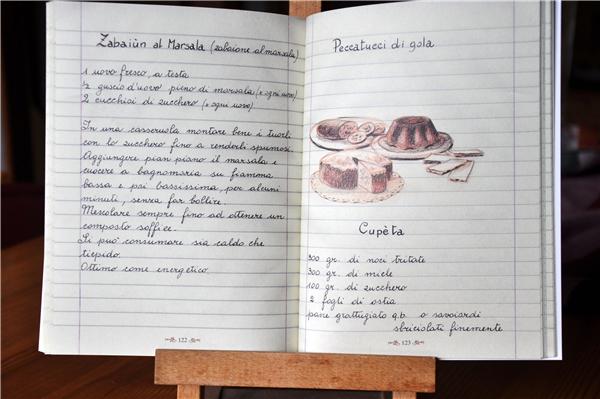 Zabaiùn al Marsala (zabaione al marsala)
1 uovo fresco, a testa
½ guscio d'uovo pieno di marsala (x ogni uovo)
2 cucchiai di zucchero (x ogni uovo)
In una casseruola montare bene i tuorli
con lo zucchero fino a renderli spumosi.
Aggiungere pian piano il marsala e
cuocere a bagnomaria su fiamma
bassa e poi bassissima, per alcuni
minuti, senza far bollire.
Mescolare sempre fino ad ottenere un
composto soffice.
Si può consumare sia caldo che
tiepido.
Ottimo come energetico.
122
Peccatucci di gola
Cupèta
300 gr. di noci tritate
300 gr. di miele
100 gr. di zucchero
2 fogli di ostia
pane grattugiato q.b. o savoiardi
sbriciolati finemente
123